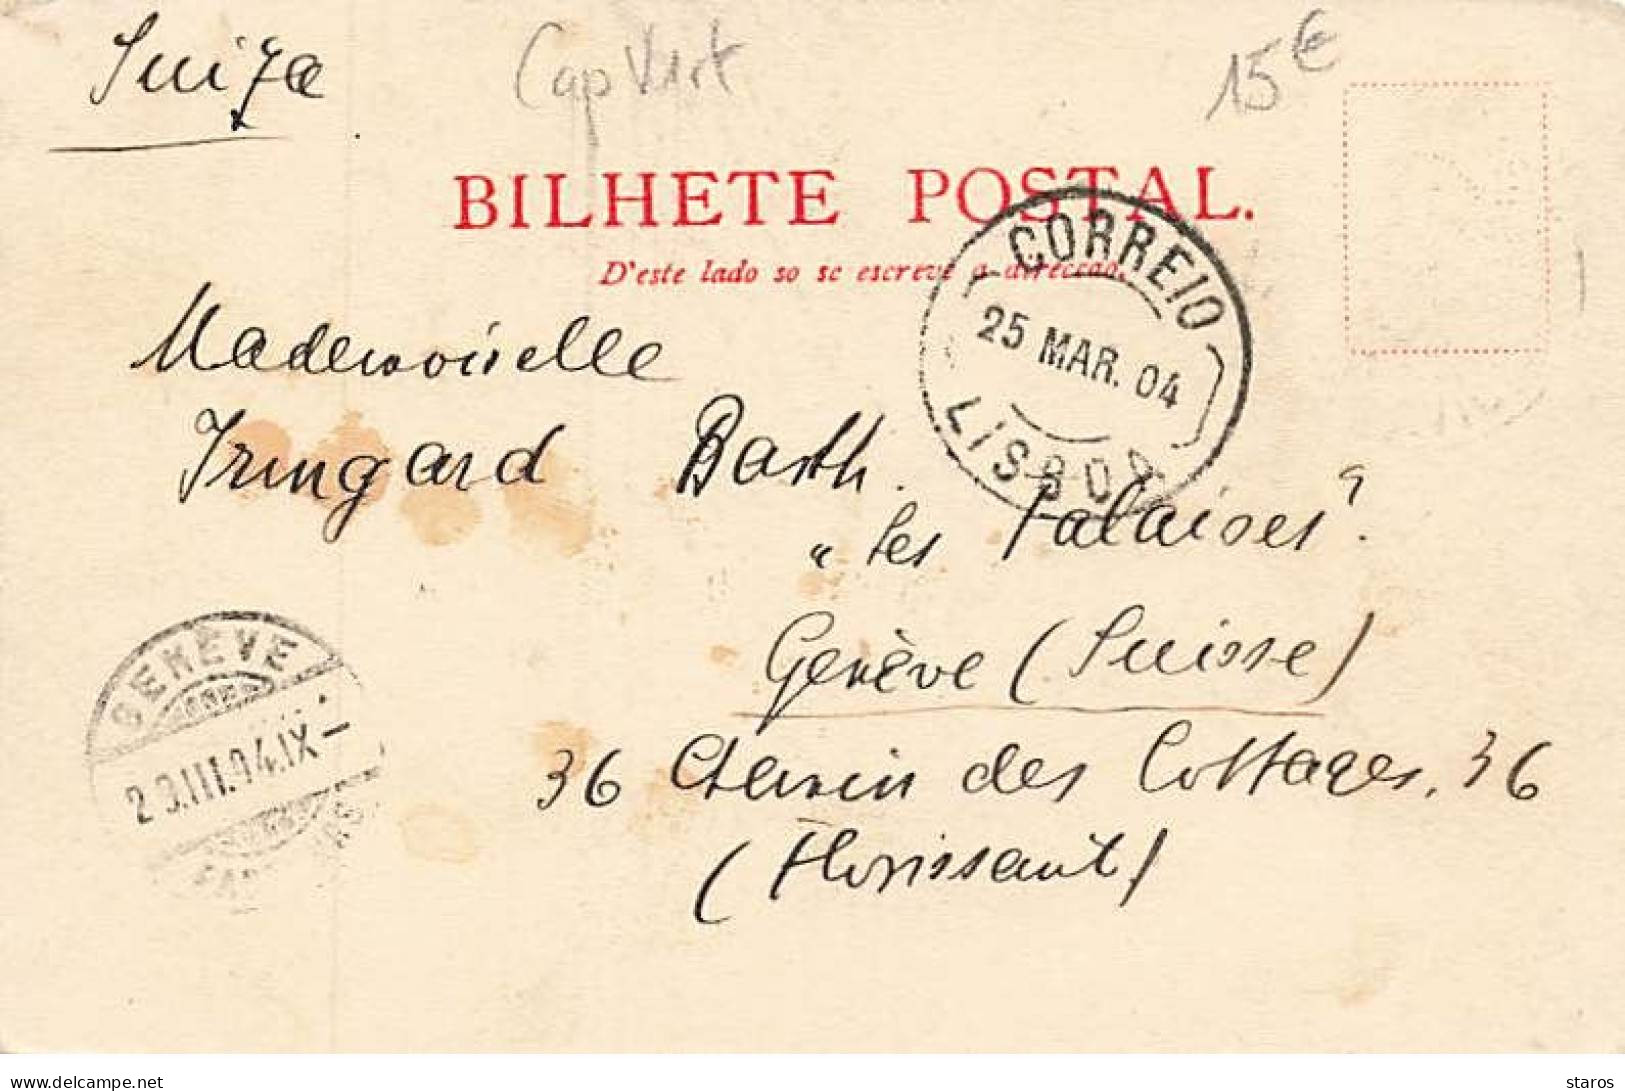 Suiza
Cap Vert
15€
BILHETE POSTAL.
D'este lado so se escreve a direccao.
CORREIO
25 MAR. 04
LISBOA
Mademoiselle
Irmgard Barth.
„Les Falaises“.
Genève (Suisse)
36 Chemin des Cottages, 36
(Florissant)
GENÈVE
29.III.04.IX-
www.delcampe.net
staros